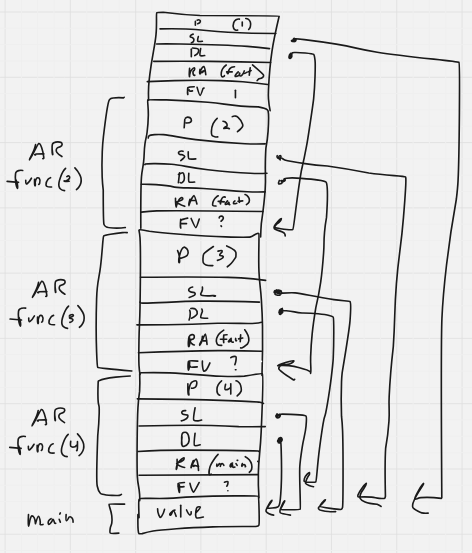 P (1)
SL
DL
RA (fact)
FV 1
P (2)
AR
func(2)
SL
DL
RA (fact)
FV ?
P (3)
AR
func(3)
SL
DL
RA (fact)
FV ?
P (4)
AR
func(4)
SL
DL
RA (main)
FV ?
main
value